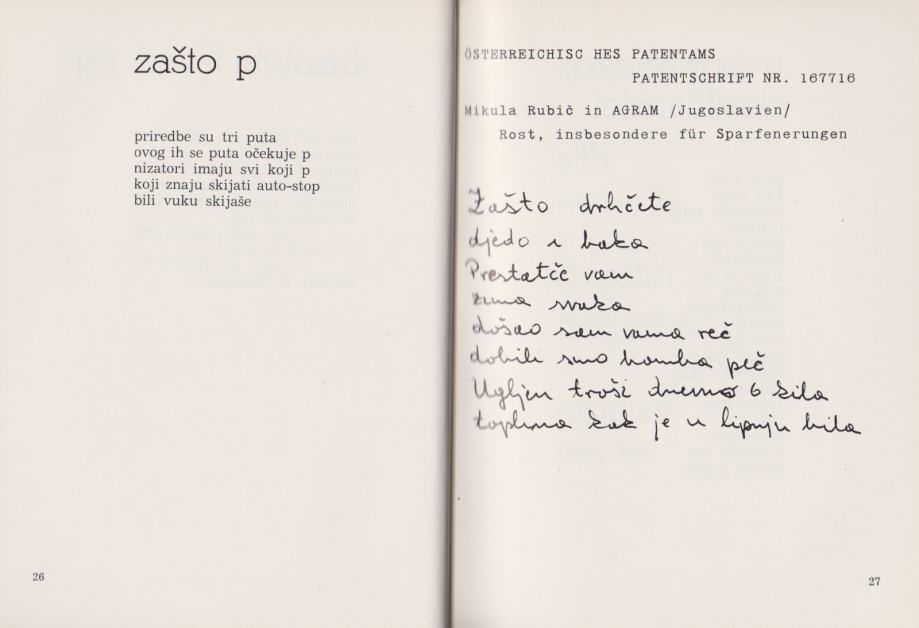 zašto p
priredbe su tri puta
ovog ih se puta očekuje p
nizatori imaju svi koji p
koji znaju skijati auto-stop
bili vuku skijaše
26
ÖSTERREICHISC HES PATENTAMS
PATENTSCHRIFT NR. 167716
Mikula Rubič in AGRAM /Jugoslavien/
Rost, insbesondere für Sparfenerungen
Zašto drhčete
djedo i baka
Prestatče vam
zima svaka
došao sam vama reč
dobili smo bomba peč
Ugljen troši dnevno 6 kila
toplina kak je u lipnju bila
27